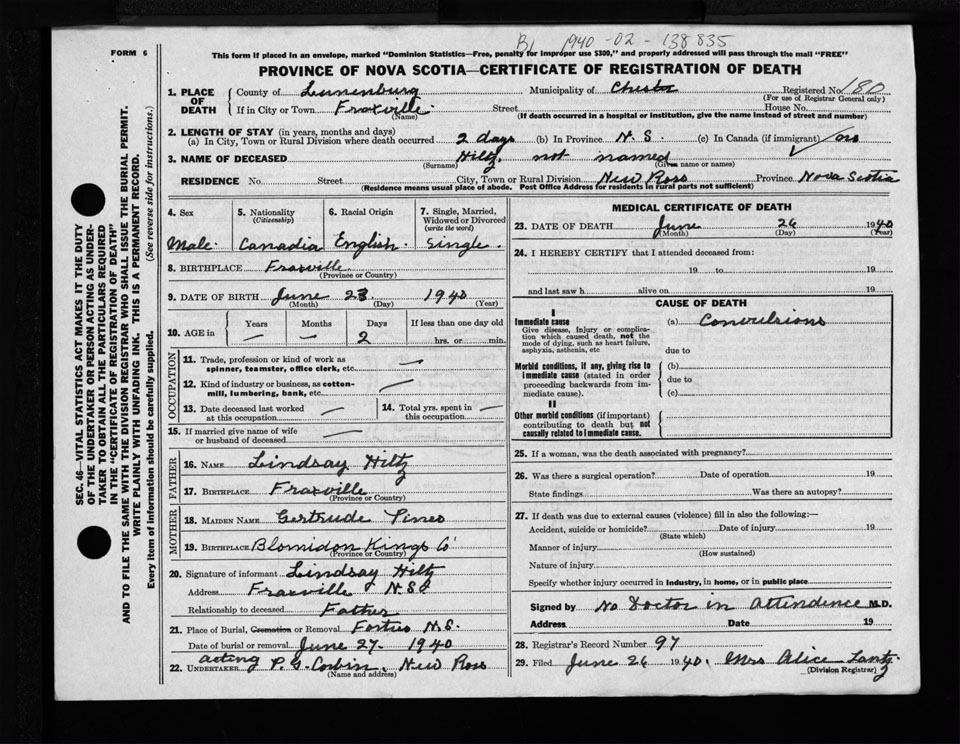 B1 1940-02-138835
FORM 6
This form if placed in an envelope, marked "Dominion Statistics—Free, penalty for improper use $300," and properly addressed will pass through the mail "FREE"
PROVINCE OF NOVA SCOTIA—CERTIFICATE OF REGISTRATION OF DEATH
1. PLACE OF DEATH
County of Lunenburg Municipality of Chester Registered No. 80
(For use of Registrar General only)
If in City or Town Fraxville Street House No.
(Name) (If death occurred in a hospital or institution, give the name instead of street and number)
2. LENGTH OF STAY (in years, months and days)
(a) In City, Town or Rural Division where death occurred 2 days (b) In Province N.S. (c) In Canada (if immigrant)
3. NAME OF DECEASED Hiltz, not named
(Surname) (Given name or names)
RESIDENCE No. Street City, Town or Rural Division New Ross Province Nova Scotia
(Residence means usual place of abode. Post Office Address for residents in rural parts not sufficient)
4. Sex
Male.
5. Nationality
(Citizenship)
Canadia
6. Racial Origin
English.
7. Single, Married, Widowed or Divorced
(write the word)
Single.
8. BIRTHPLACE Fraxville
(Province or Country)
9. DATE OF BIRTH June 23 1940
(Month) (Day) (Year)
10. AGE in
Years Months Days If less than one day old
— — 2 hrs. or min.
OCCUPATION
11. Trade, profession or kind of work as
spinner, teamster, office clerk, etc. —
12. Kind of industry or business, as cotton-
mill, lumbering, bank, etc. —
13. Date deceased last worked
at this occupation —
14. Total yrs. spent in
this occupation —
15. If married give name of wife
or husband of deceased —
FATHER
16. NAME Lindsay Hiltz
17. BIRTHPLACE Fraxville
(Province or Country)
MOTHER
18. MAIDEN NAME Gertrude Pineo
19. BIRTHPLACE Blomidon Kings Co
(Province or Country)
20. Signature of informant Lindsay Hiltz
Address Fraxville N.S.
Relationship to deceased Father
21. Place of Burial, Cremation or Removal Forties N.S.
Date of burial or removal June 27. 1940
22. UNDERTAKER acting P. G. Corbin. New Ross
(Name and address)
MEDICAL CERTIFICATE OF DEATH
23. DATE OF DEATH June 26 1940
(Month) (Day) (Year)
24. I HEREBY CERTIFY that I attended deceased from:
19 to 19
and last saw h alive on 19
CAUSE OF DEATH
I
Immediate cause
Give disease, injury or complica-
tion which caused death, not the
mode of dying, such as heart failure,
asphyxia, asthenia, etc
(a) Convulsions
due to
Morbid conditions, if any, giving rise to
immediate cause (stated in order
proceeding backwards from im-
mediate cause).
(b)
due to
(c)
II
Other morbid conditions (if important)
contributing to death but not
causally related to immediate cause.
25. If a woman, was the death associated with pregnancy?
26. Was there a surgical operation? Date of operation 19
State findings Was there an autopsy?
27. If death was due to external causes (violence) fill in also the following:—
Accident, suicide or homicide? Date of injury 19
(State which)
Manner of injury
(How sustained)
Nature of injury
Specify whether injury occurred in industry, in home, or in public place
Signed by No Doctor in Attendence M.D.
Address Date 19
28. Registrar's Record Number 97
29. Filed June 26 1940. Mrs Alice Lantz
(Division Registrar)
SEC. 46—VITAL STATISTICS ACT MAKES IT THE DUTY
OF THE UNDERTAKER OR PERSON ACTING AS UNDER-
TAKER TO OBTAIN ALL THE PARTICULARS REQUIRED
IN THE "CERTIFICATE OF REGISTRATION OF DEATH"
AND TO FILE THE SAME WITH THE DIVISION REGISTRAR WHO SHALL ISSUE THE BURIAL PERMIT.
WRITE PLAINLY WITH UNFADING INK. THIS IS A PERMANENT RECORD.
Every item of information should be carefully supplied. (See reverse side for instructions.)